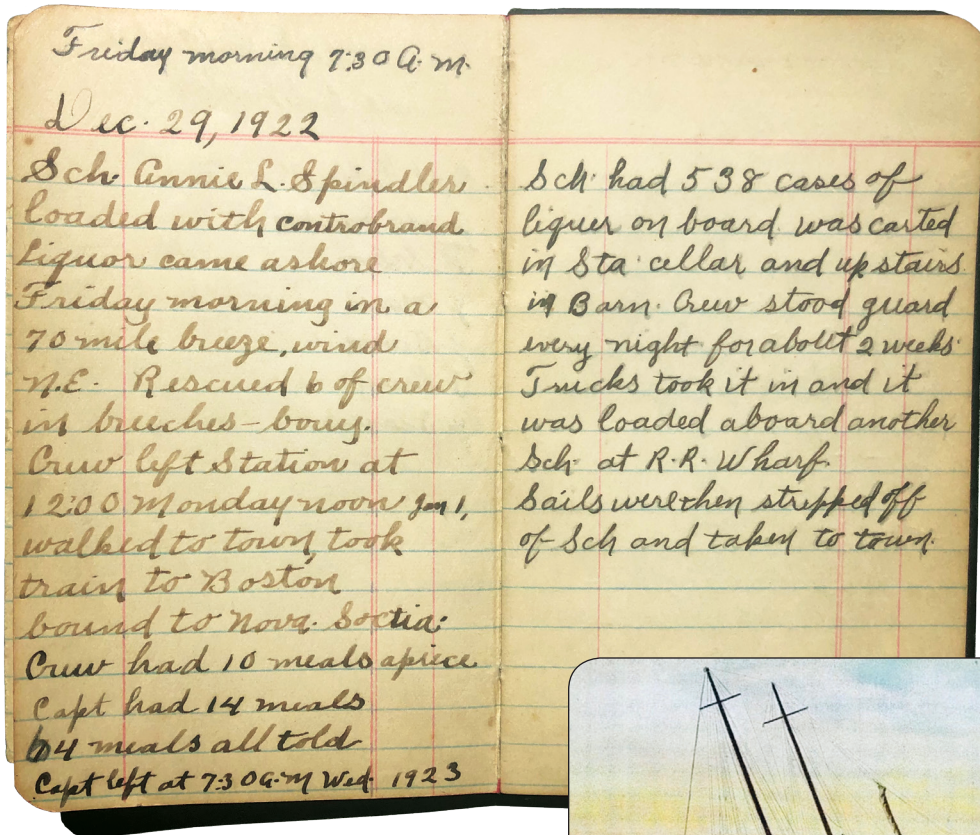 Friday morning 7:30 A.M.
Dec. 29, 1922
Sch. Annie L. Spindler
loaded with controbrand
Liquor came ashore
Friday morning in a
70 mile breeze, wind
N.E. Rescued 6 of crew
in breeches-bouy.
Crew left Station at
12:00 Monday noon Jan 1,
walked to town, took
train to Boston
bound to Nova. Soctia.
Crew had 10 meals apiece
Capt had 14 meals
64 meals all told
Capt left at 7:30 A.M Wed. 1923
Sch. had 538 cases of
liquer on board was carted
in Sta. cellar and up stairs
in Barn. Crew stood guard
every night for about 2 weeks
Trucks took it in and it
was loaded aboard another
Sch. at R.R. Wharf.
Sails were then stripped off
of Sch and taken to town.